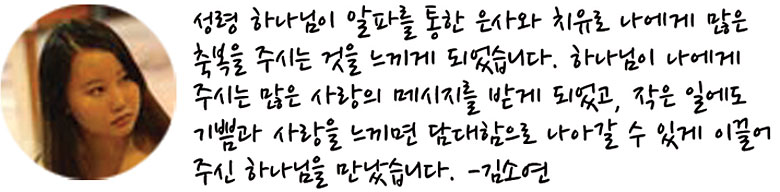 성령 하나님이 알파를 통한 은사와 치유로 나에게 많은
축복을 주시는 것을 느끼게 되었습니다. 하나님이 나에게
주시는 많은 사랑의 메시지를 받게 되었고, 작은 일에도
기쁨과 사랑을 느끼면 담대함으로 나아갈 수 있게 이끌어
주신 하나님을 만났습니다. -김소연